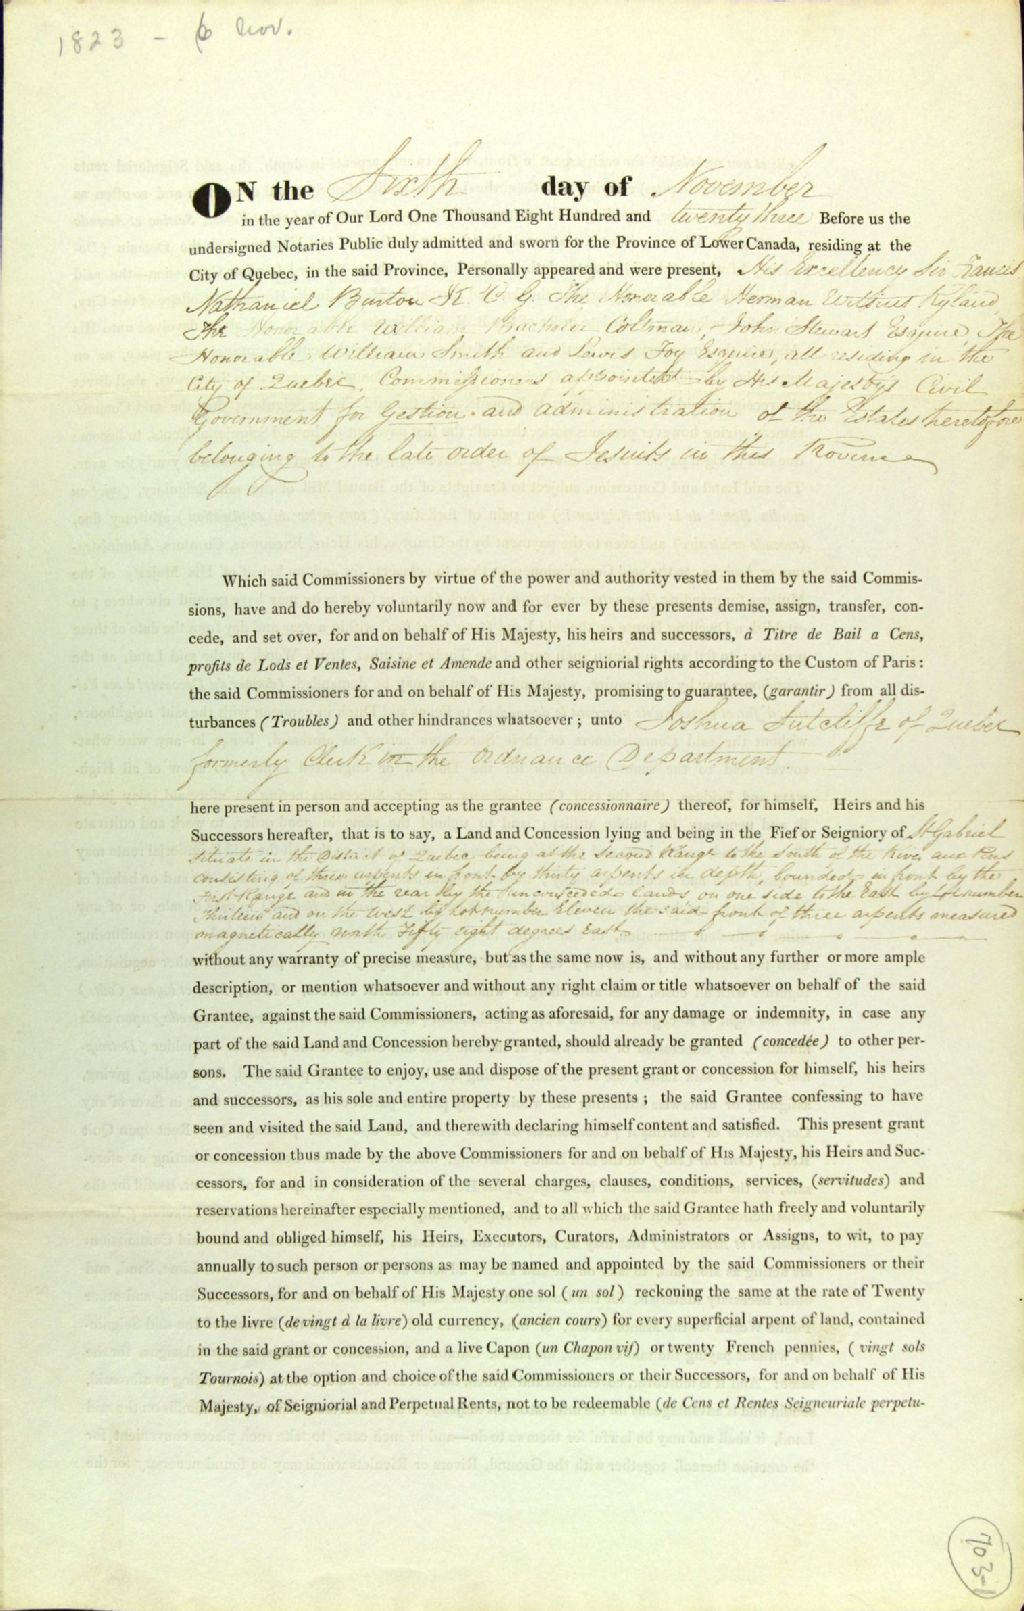 1823 - 6 Nov.
ON the Sixth day of November
in the year of Our Lord One Thousand Eight Hundred and twenty three Before us the
undersigned Notaries Public duly admitted and sworn for the Province of Lower Canada, residing at the
City of Quebec, in the said Province, Personally appeared and were present, His Excellency Sir Francis
Nathaniel Burton K. C. G. The Honorable Herman Witsius Ryland
The Honorable William Bachelor Coltman, John Stewart Esquire, The
Honorable William Smith and Lewis Foy Esquires, all residing in the
City of Quebec, Commissioners appointed by His Majesty's Civil
Government for Gestion and administration of the Estates heretofore
belonging to the late order of Jesuits in this Province
Which said Commissioners by virtue of the power and authority vested in them by the said Commis-
sions, have and do hereby voluntarily now and for ever by these presents demise, assign, transfer, con-
cede, and set over, for and on behalf of His Majesty, his heirs and successors, à Titre de Bail a Cens,
profits de Lods et Ventes, Saisine et Amende and other seigniorial rights according to the Custom of Paris:
the said Commissioners for and on behalf of His Majesty, promising to guarantee, (garantir) from all dis-
turbances (Troubles) and other hindrances whatsoever; unto Joshua Sutcliffe of Quebec
formerly Clerk in the Ordnance Department.
here present in person and accepting as the grantee (concessionnaire) thereof, for himself, Heirs and his
Successors hereafter, that is to say, a Land and Concession lying and being in the Fief or Seigniory of St Gabriel
situate in the District of Quebec being at the second Range to the South of the River aux Pins
consisting of three arpents in front by thirty arpents in depth, bounded in front by the
first Range and in the rear by the unconceded lands, on one side to the East by Lot number
Thirteen and on the west by Lot number Eleven the said front of three arpents measured
magnetically north Fifty eight degrees East
without any warranty of precise measure, but as the same now is, and without any further or more ample
description, or mention whatsoever and without any right claim or title whatsoever on behalf of the said
Grantee, against the said Commissioners, acting as aforesaid, for any damage or indemnity, in case any
part of the said Land and Concession hereby granted, should already be granted (concedée) to other per-
sons. The said Grantee to enjoy, use and dispose of the present grant or concession for himself, his heirs
and successors, as his sole and entire property by these presents; the said Grantee confessing to have
seen and visited the said Land, and therewith declaring himself content and satisfied. This present grant
or concession thus made by the above Commissioners for and on behalf of His Majesty, his Heirs and Suc-
cessors, for and in consideration of the several charges, clauses, conditions, services, (servitudes) and
reservations hereinafter especially mentioned, and to all which the said Grantee hath freely and voluntarily
bound and obliged himself, his Heirs, Executors, Curators, Administrators or Assigns, to wit, to pay
annually to such person or persons as may be named and appointed by the said Commissioners or their
Successors, for and on behalf of His Majesty one sol (un sol) reckoning the same at the rate of Twenty
to the livre (de vingt à la livre) old currency, (ancien cours) for every superficial arpent of land, contained
in the said grant or concession, and a live Capon (un Chapon vif) or twenty French pennies, (vingt sols
Tournois) at the option and choice of the said Commissioners or their Successors, for and on behalf of His
Majesty, of Seigniorial and Perpetual Rents, not to be redeemable (de Cens et Rentes Seigneuriale perpetu-
703-1